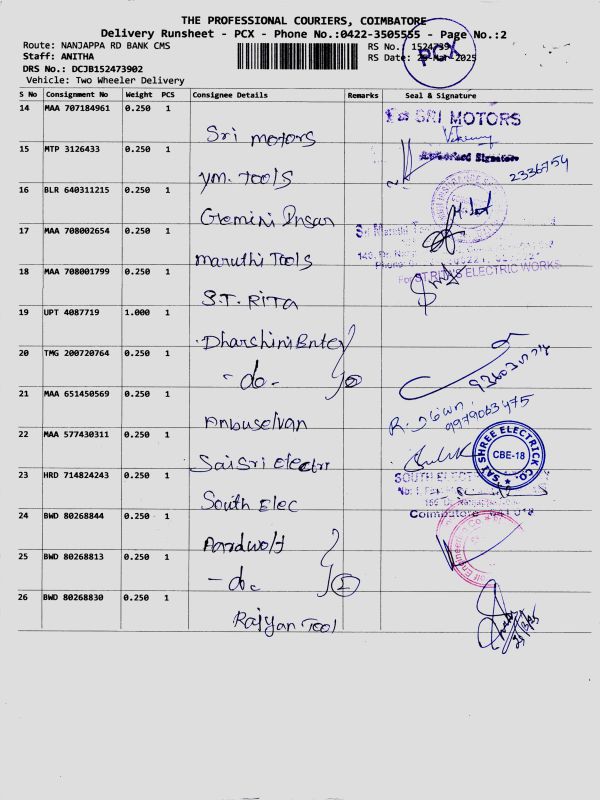 THE PROFESSIONAL COURIERS, COIMBATORE
Delivery Runsheet - PCX - Phone No.:0422-3505555 - Page No.:2
Route: NANJAPPA RD BANK CMS RS No.: 1524739
Staff: ANITHA RS Date: 29-Mar-2025
PCX
DRS No.: DCJB152473902
Vehicle: Two Wheeler Delivery
S No Consignment No Weight PCS Consignee Details Remarks Seal & Signature
14 MAA 707184961 0.250 1 Sri motors
SRI MOTORS
Authorised Signatore
15 MTP 3126433 0.250 1 ym. Tools
2336754
16 BLR 640311215 0.250 1 Gemini Insan
17 MAA 708002654 0.250 1 maruthi Tools
Sri Maruthi
18 MAA 708001799 0.250 1 S.T. RITA
For ST.RITA'S ELECTRIC WORKS
19 UPT 4087719 1.000 1 Dharshini Enter
20 TMG 200720764 0.250 1 - do - 2
21 MAA 651450569 0.250 1 Anbuselvan
9979063475
22 MAA 577430311 0.250 1 Sai Sri Electri
SAI SHREE ELECTRICK CO.
CBE-18
23 HRD 714824243 0.250 1 South Elec
SOUTH ELECT
Coimbatore - 641 018
24 BWD 80268844 0.250 1 Aardwolf
25 BWD 80268813 0.250 1 - do - 2
26 BWD 80268830 0.250 1 Rajyan Tool
29/3/25